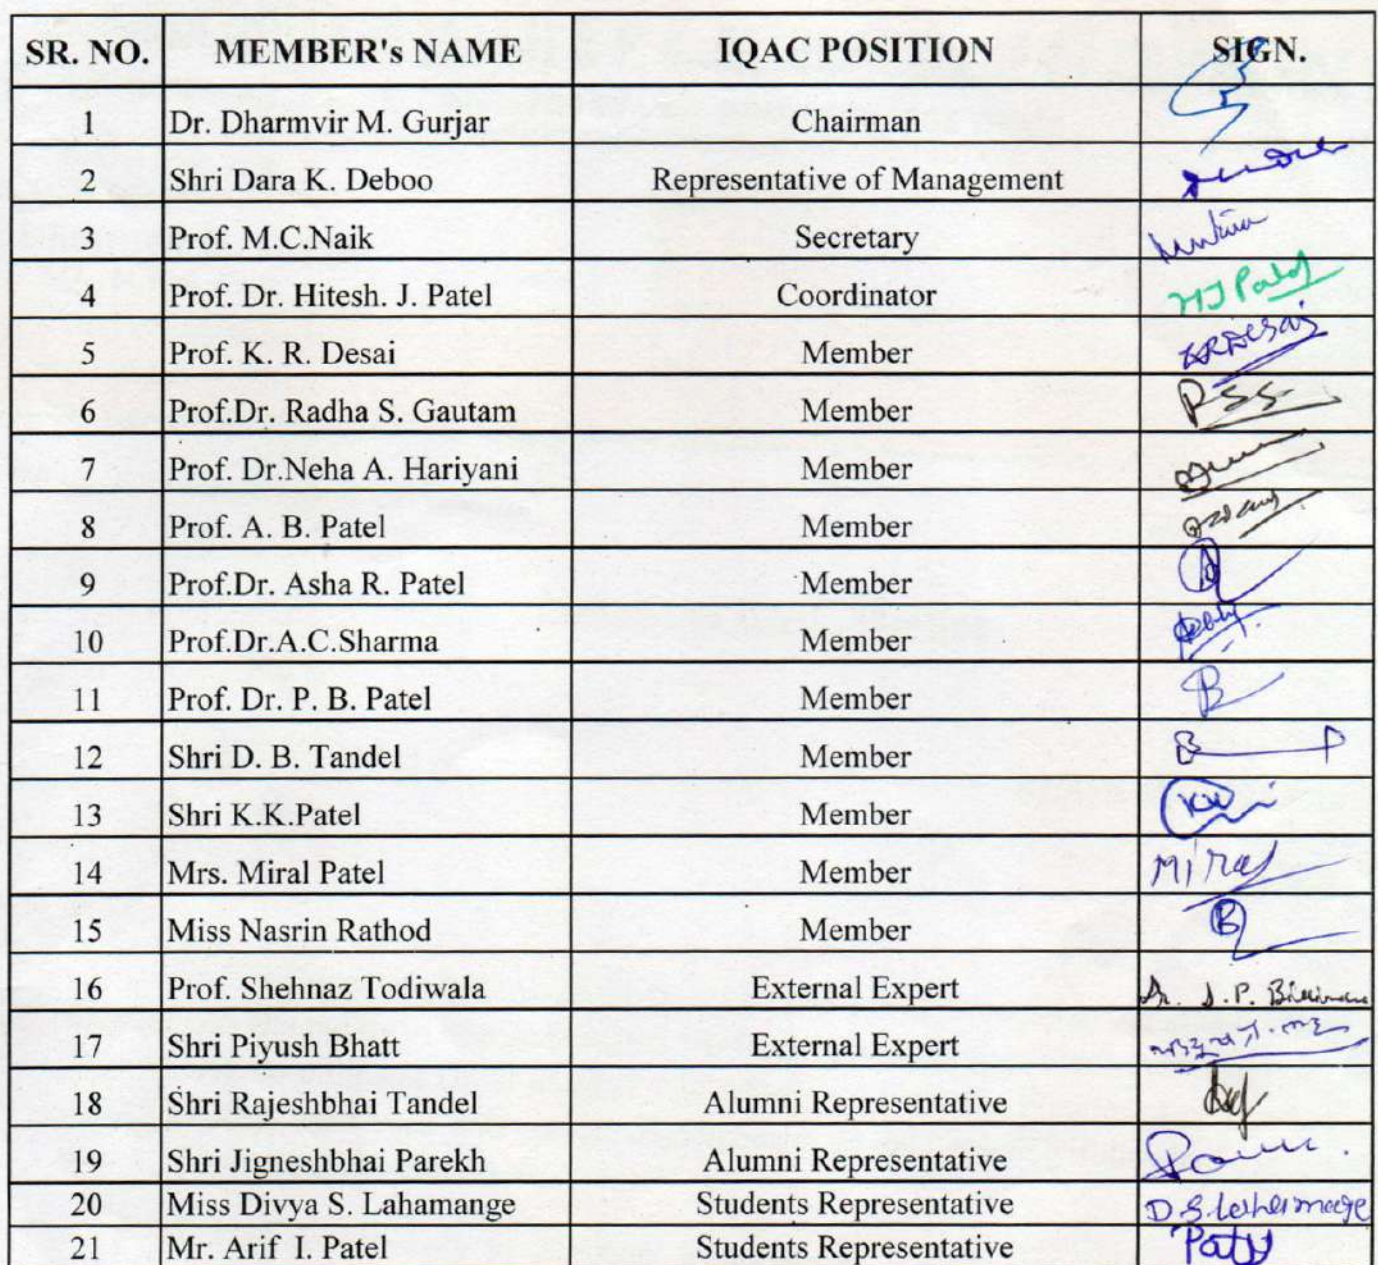 SR. NO. MEMBER's NAME IQAC POSITION SIGN.
1 Dr. Dharmvir M. Gurjar Chairman
2 Shri Dara K. Deboo Representative of Management
3 Prof. M.C.Naik Secretary
4 Prof. Dr. Hitesh. J. Patel Coordinator HJ Patel
5 Prof. K. R. Desai Member KRDesai
6 Prof.Dr. Radha S. Gautam Member
7 Prof. Dr.Neha A. Hariyani Member
8 Prof. A. B. Patel Member
9 Prof.Dr. Asha R. Patel Member
10 Prof.Dr.A.C.Sharma Member
11 Prof. Dr. P. B. Patel Member
12 Shri D. B. Tandel Member
13 Shri K.K.Patel Member
14 Mrs. Miral Patel Member Miral
15 Miss Nasrin Rathod Member
16 Prof. Shehnaz Todiwala External Expert
17 Shri Piyush Bhatt External Expert
18 Shri Rajeshbhai Tandel Alumni Representative
19 Shri Jigneshbhai Parekh Alumni Representative
20 Miss Divya S. Lahamange Students Representative
21 Mr. Arif I. Patel Students Representative